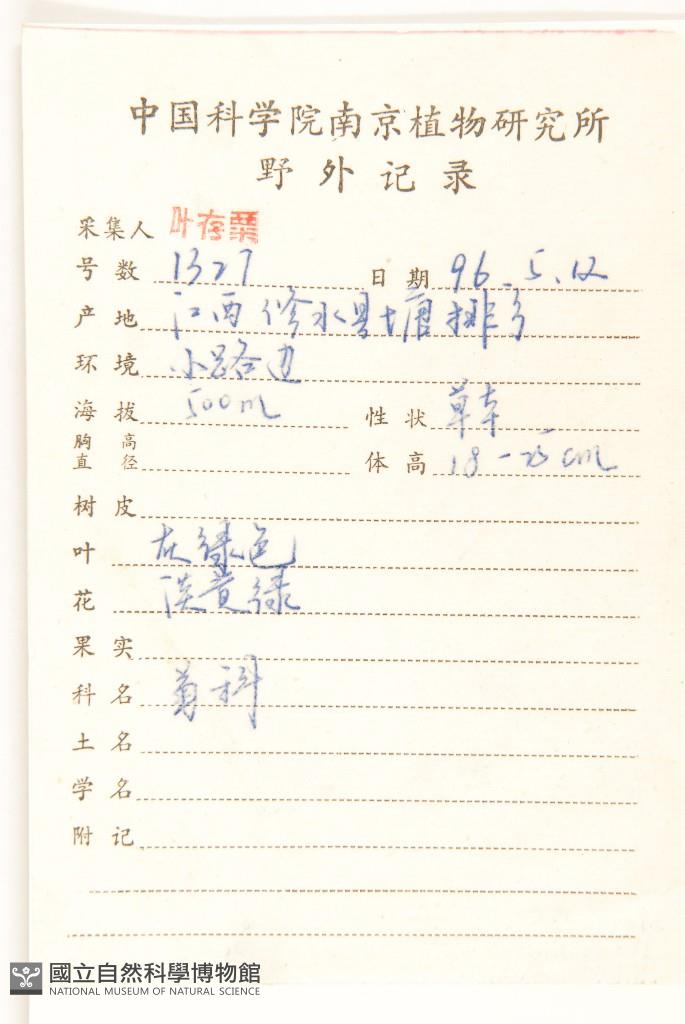 中国科学院南京植物研究所
野外记录
采集人 叶存粟
号数 1327 日期 96.5.12
产地 江西修水县塘排乡
环境 小路边
海拔 500m 性状 草本
胸高直径 体高 18-25cm
树皮
叶 灰绿色
花 淡黄绿
果实
科名 菊科
土名
学名
附记
國立自然科學博物館
NATIONAL MUSEUM OF NATURAL SCIENCE